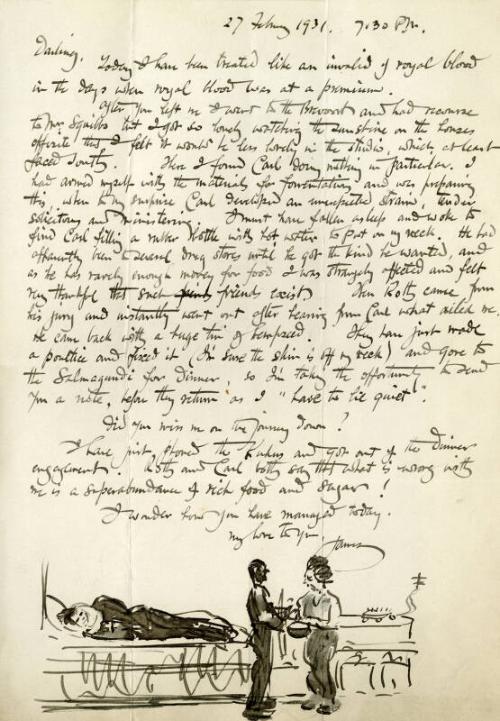 27 February 1931. 7.30 P.M.
Darling, Today I have been treated like an invalid of royal blood
in the days when royal blood was at a premium.
After you left me I went to the Brevoort and had recourse
to Mr Squibbs but I got so lonely watching the sunshine on the houses
opposite that I felt it would be less lonely in the studio, which at least
faced South. Here I found Carl doing nothing in particular. I
had armed myself with the materials for fomentations and was preparing
this, when to my surprise Carl developed an unexpected strain, tender
solicitous and ministering. I must have fallen asleep and woke to
find Carl filling a rubber bottle with hot water to put on my neck. He had
apparently been to several drug stores until he got the kind he wanted, and
as he has rarely enough money for food I was strangely affected and felt
very thankful that such friends exist. Then Rotty came from
his jury and instantly went out after hearing from Carl what ailed me.
He came back with a huge tin of . They have just made
a poultice and placed it (I'm sure the skin is off my neck) and gone to
the Salmagundi for Dinner so I'm taking the opportunity to send
you a note, before they return as I "have to lie quiet".
Did you miss me on the journey down?
I have just phoned the and got out of the Dinner
engagement. Rotty and Carl both say that what is wrong with
me is a superabundance of rich food and sugar!
I wonder how you have managed today.
my love to you,
James